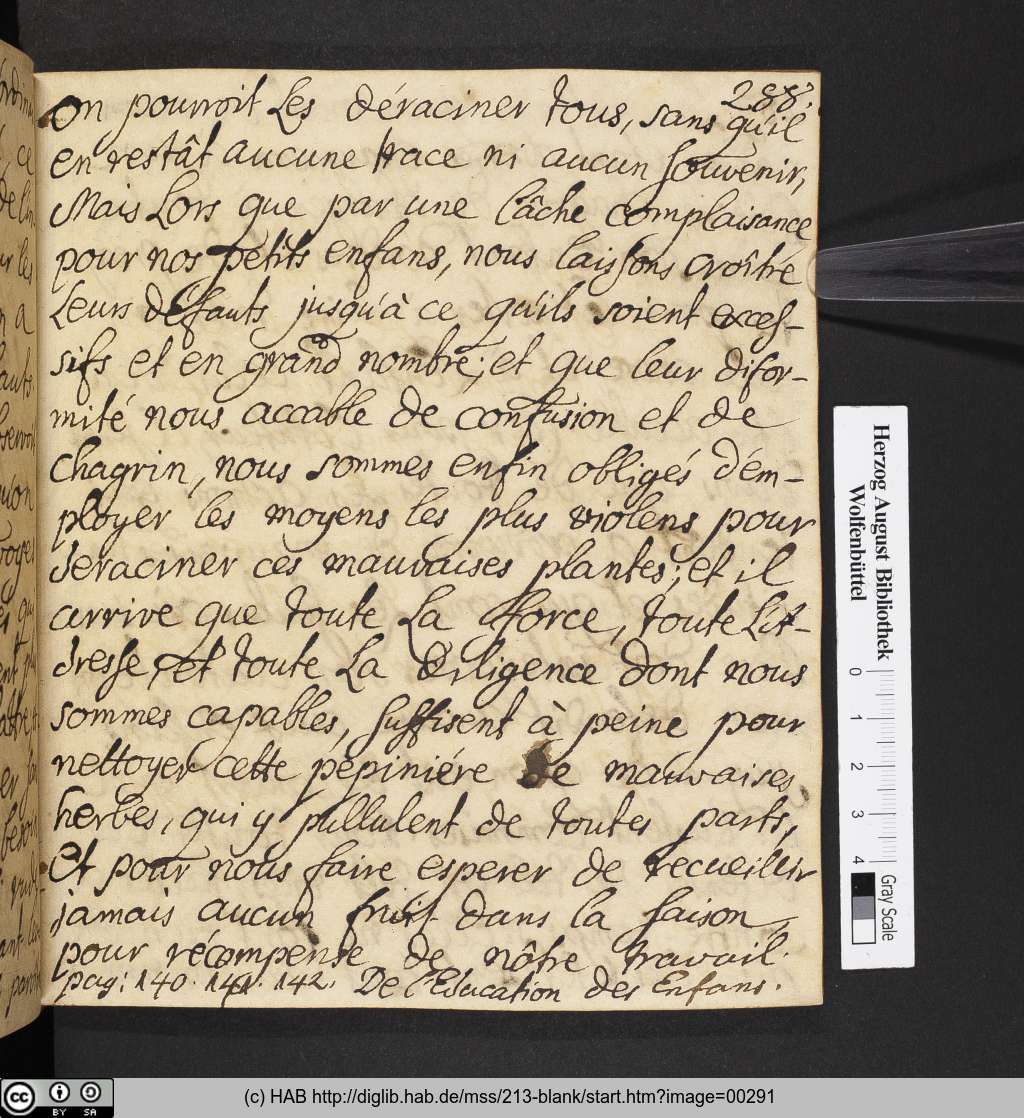 288.
on pourroit Les déraciner tous, sans qu'il
en restât aucune trace ni aucun souvenir,
Mais Lors que par une lâche complaisance
pour nos petits enfans, nous laissons croître
Leurs défauts jusqu'à ce qu'ils soient exces-
sifs et en grand nombre; et que leur difor-
mité nous accable de confusion et de
chagrin, nous sommes enfin obligés d'em-
ployer les moyens les plus violens pour
deraciner ces mauvaises plantes; et il
arrive que toute La force, toute L'ad-
dresse, et toute La Diligence dont nous
sommes capables, suffisent à peine pour
nettoyer cette pépiniére de mauvaises
herbes, qui y pullulent de toutes parts,
Et pour nous faire esperer de recueillir
jamais aucun fruit dans la saison,
pour récompense de nôtre travail.
pag: 140. 141. 142. De l'Education des Enfans.
Herzog August Bibliothek
Wolfenbüttel
0 1 2 3 4
Gray Scale
(c) HAB http://diglib.hab.de/mss/213-blank/start.htm?image=00291
cc BY SA